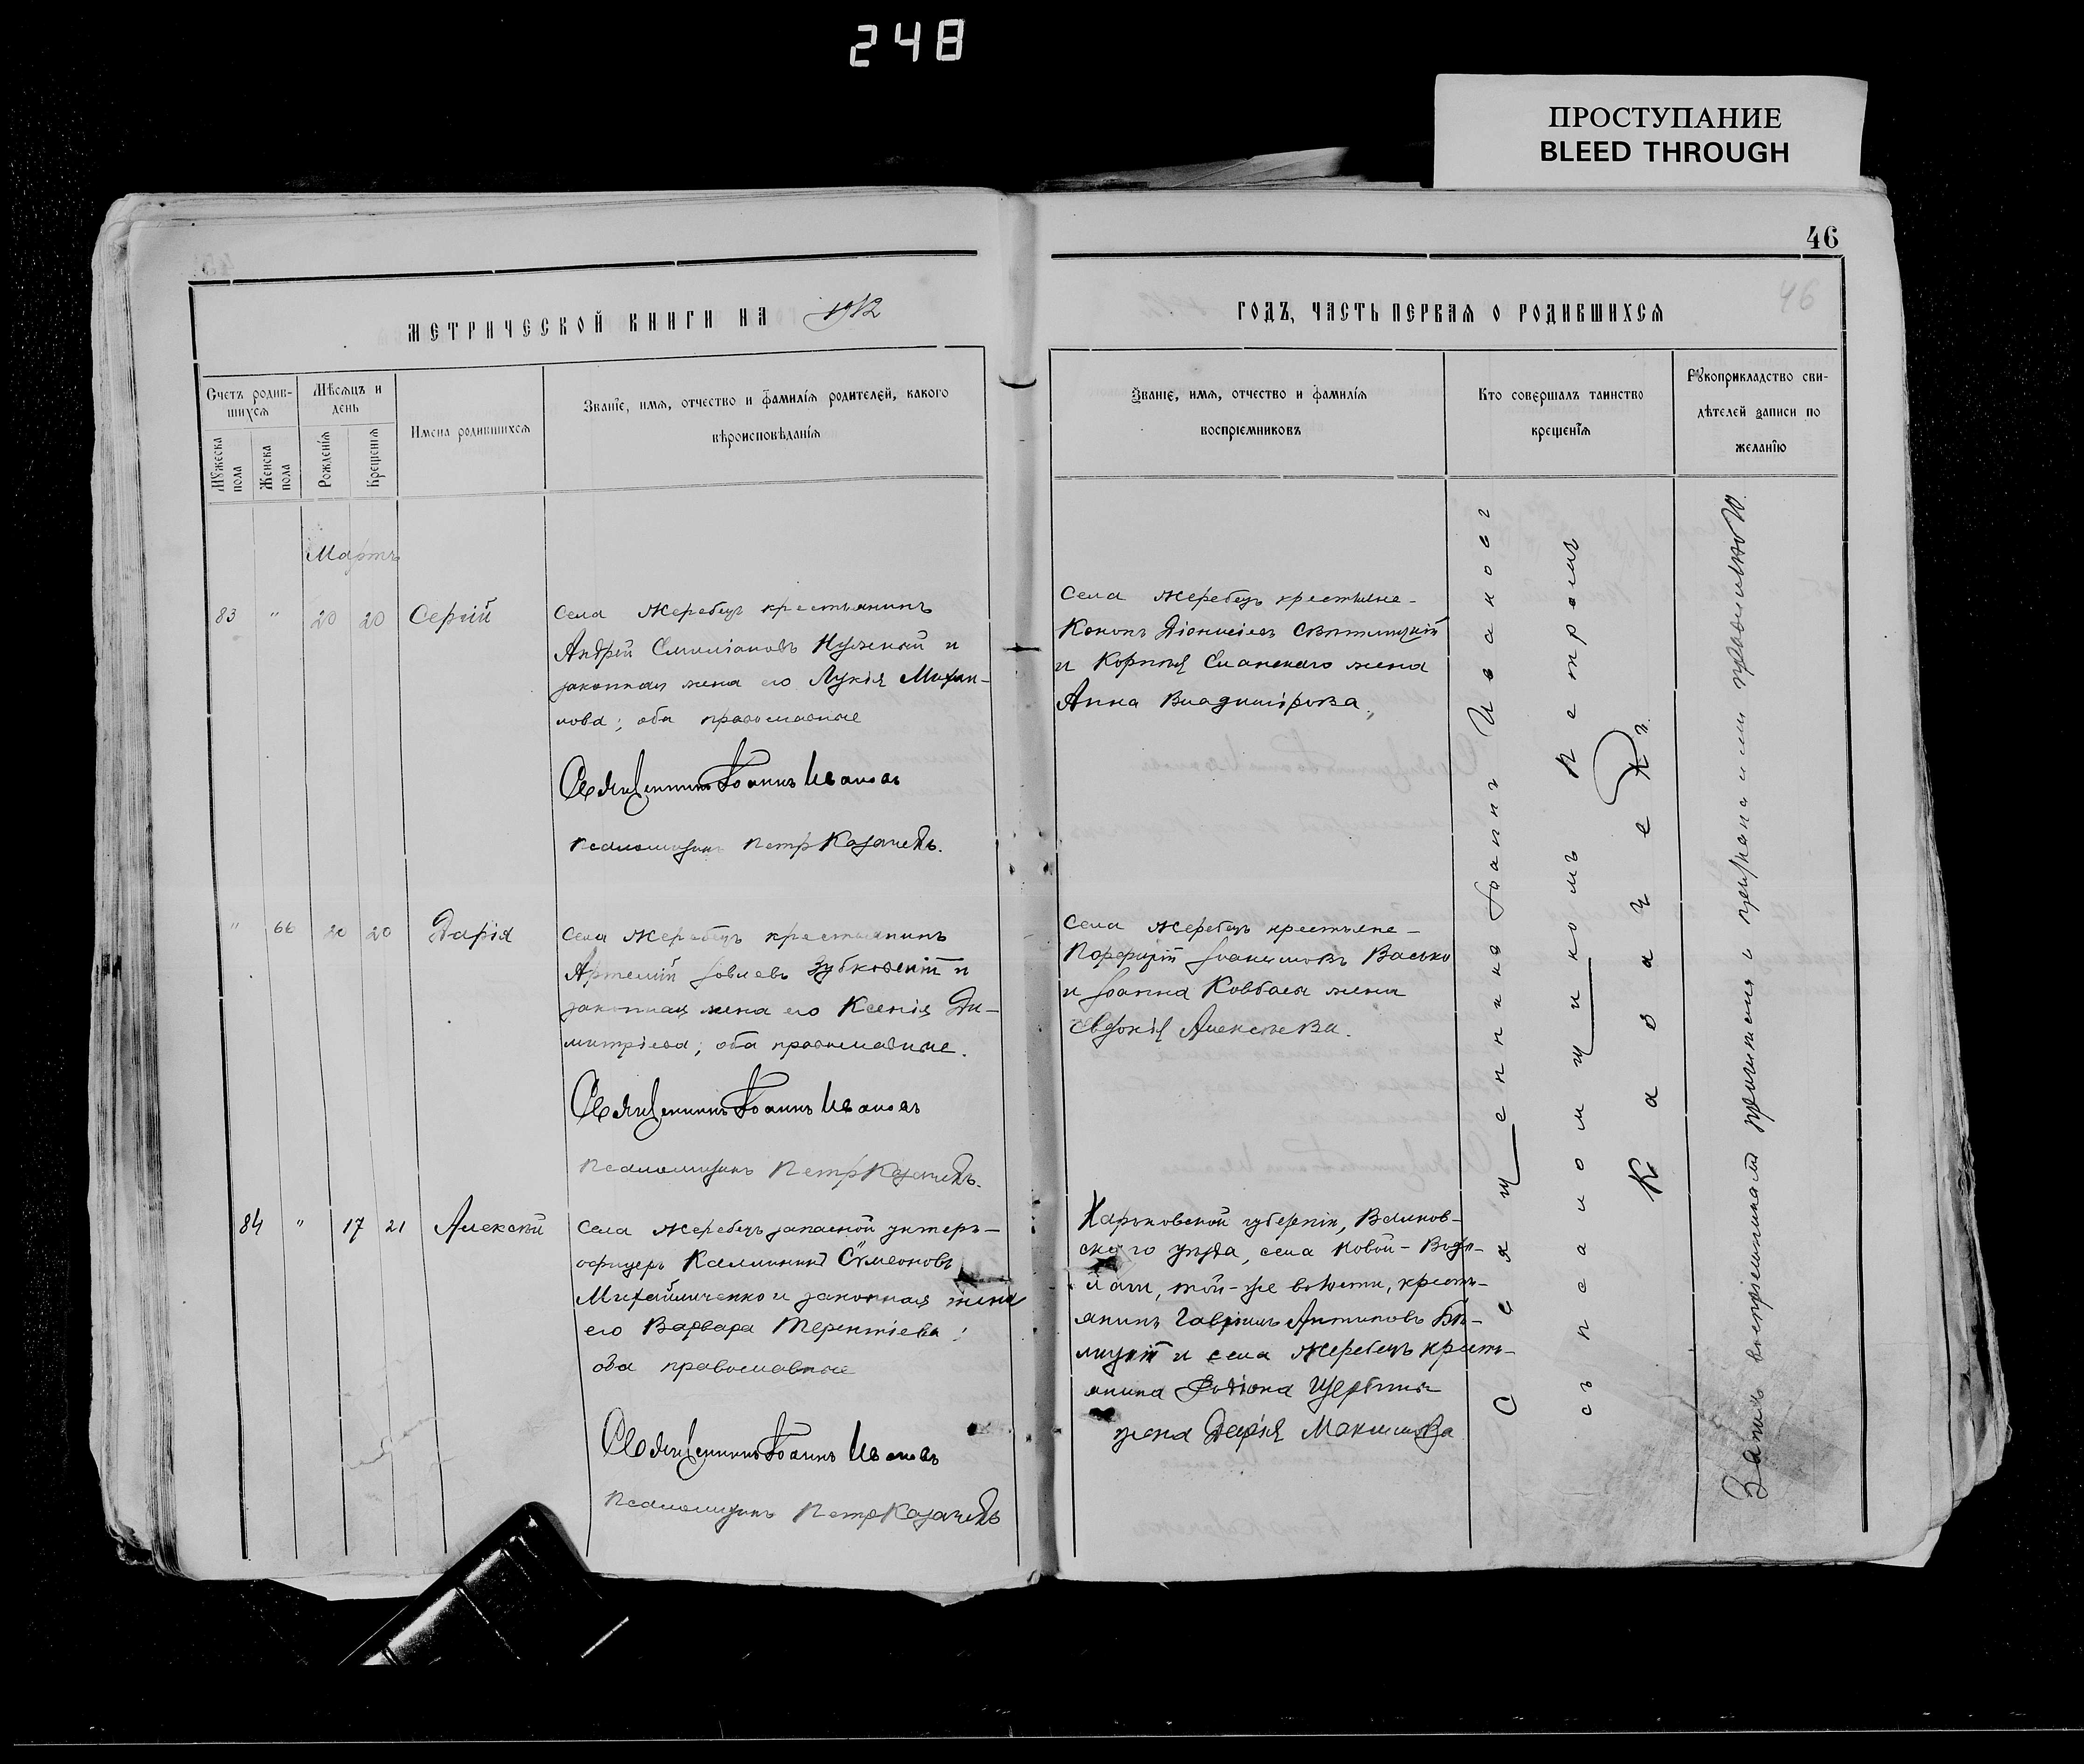 248
ПРОСТУПАНИЕ
BLEED THROUGH
46
46
МЕТРИЧЕСКОЙ КНИГИ НА 1912
ГОДЪ, ЧАСТЬ ПЕРВАЯ О РОДИВШИХСЯ
Счетъ родив-
шихся
Мѣсяцъ и
день
Мужеска
пола
Женска
пола
Рожденія
Крещенія
Имена родившихся
Званіе, имя, отчество и фамилія родителей, какого
вѣроисповѣданія
Званіе, имя, отчество и фамилія
воспріємниковъ
Кто совершалъ таинство
крещенія
Рукоприкладство сви-
дѣтелей записи по
желанію
Мартъ
83 " 20 20 Сергій
Села Жеребецъ крестьянинъ
Андрей Нужный и
законная жена его Лукія Михаи-
лова; оба православные
Священникъ Іоаннъ Ивановъ
Псаломщикъ Петръ Казачекъ.
Села Жеребецъ крестьяне-
Кононъ Діонисіевъ
и Корнилія жена
Анна Владимірова,
" 66 20 20 Дарія
Села Жеребецъ крестьянинъ
Артемій Іовлевъ Зубковскій и
законная жена его Ксенія Ди-
митріева; оба православные.
Священникъ Іоаннъ Ивановъ
Псаломщикъ Петръ Казачекъ.
Села Жеребецъ крестьяне-
Порфирій Іоакимовъ Васько
и Іоанна Ковбасы жена
Евдокія Алексѣева.
84 " 17 21 Алексѣй
Села Жеребецъ запасной унтеръ-
офицеръ Каллиникъ Сѵмеоновъ
Михайличенко и законная жена
его Варвара Терентіева;
оба православные
Священникъ Іоаннъ Ивановъ
Псаломщикъ Петръ Казачекъ
Харьковской губерніи, Валков-
скаго уѣзда, села Новой-Водо-
лаги, той-же волости, кресть-
янинъ Гавріилъ Антиповъ Бѣ-
лицкій и села Жеребецъ кресть-
янина Родіона Щербины
жена Дарія Максимова
Священникъ Іоаннъ Ивановъ
съ псаломщикомъ Петромъ
Казачекъ